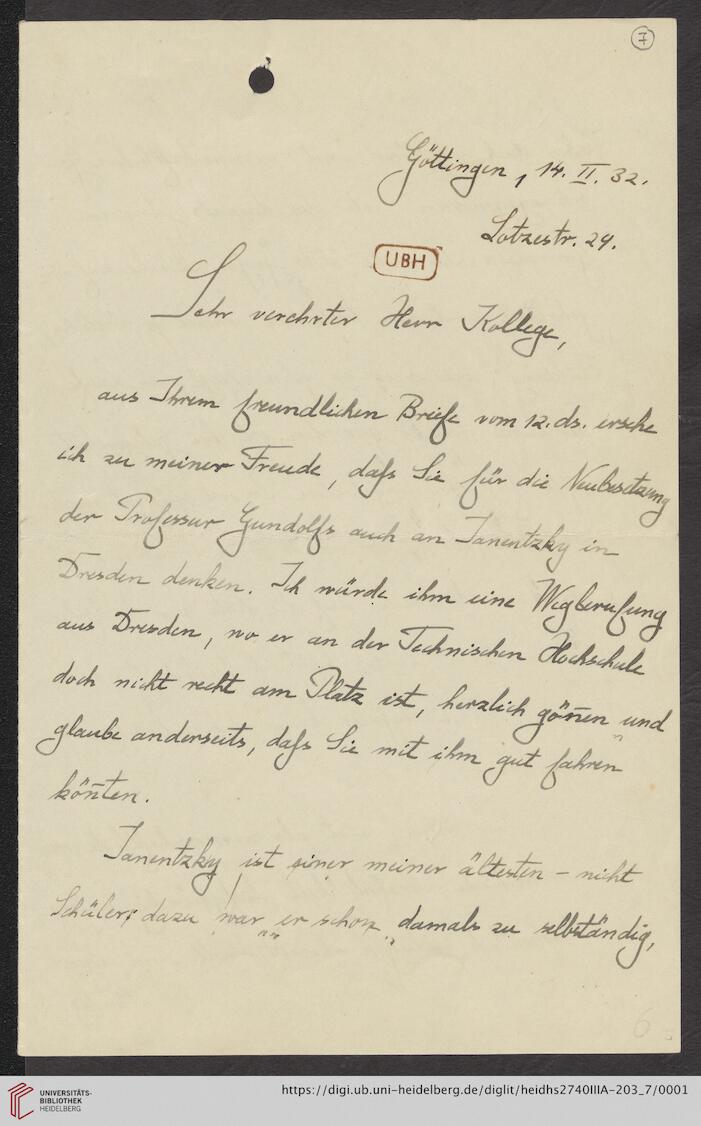 7
Göttingen, 14. II. 32.
Lotzestr. 29.
UBH
Sehr verehrter Herr Kollege,
aus Ihrem freundlichen Briefe vom 12. ds. ersehe
ich zu meiner Freude, daſs Sie für die Neubesetzung
der Professur Gundolfs auch an Janentzky in
Dresden denken. Ich würde ihm eine Wegberufung
aus Dresden, wo er an der Technischen Hochschule
doch nicht recht am Platz ist, herzlich gön̄en und
glaube anderseits, daſs Sie mit ihm gut fahren
kön̄ten.
Janentzky ist einer meiner ältesten – nicht
Schüler; dazu war er schon damals zu selbständig,
6
UNIVERSITÄTS-
BIBLIOTHEK
HEIDELBERG
https://digi.ub.uni-heidelberg.de/diglit/heidhs2740IIIA-203_7/0001